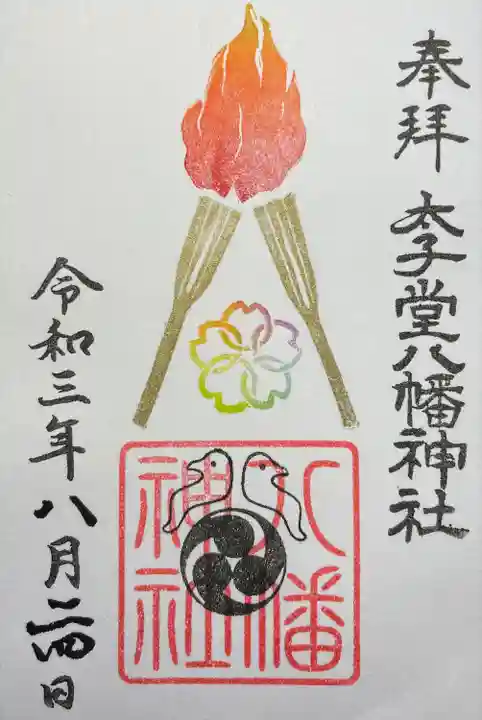 奉拝 太子堂八幡神社
八幡
神社
令和三年八月二四日